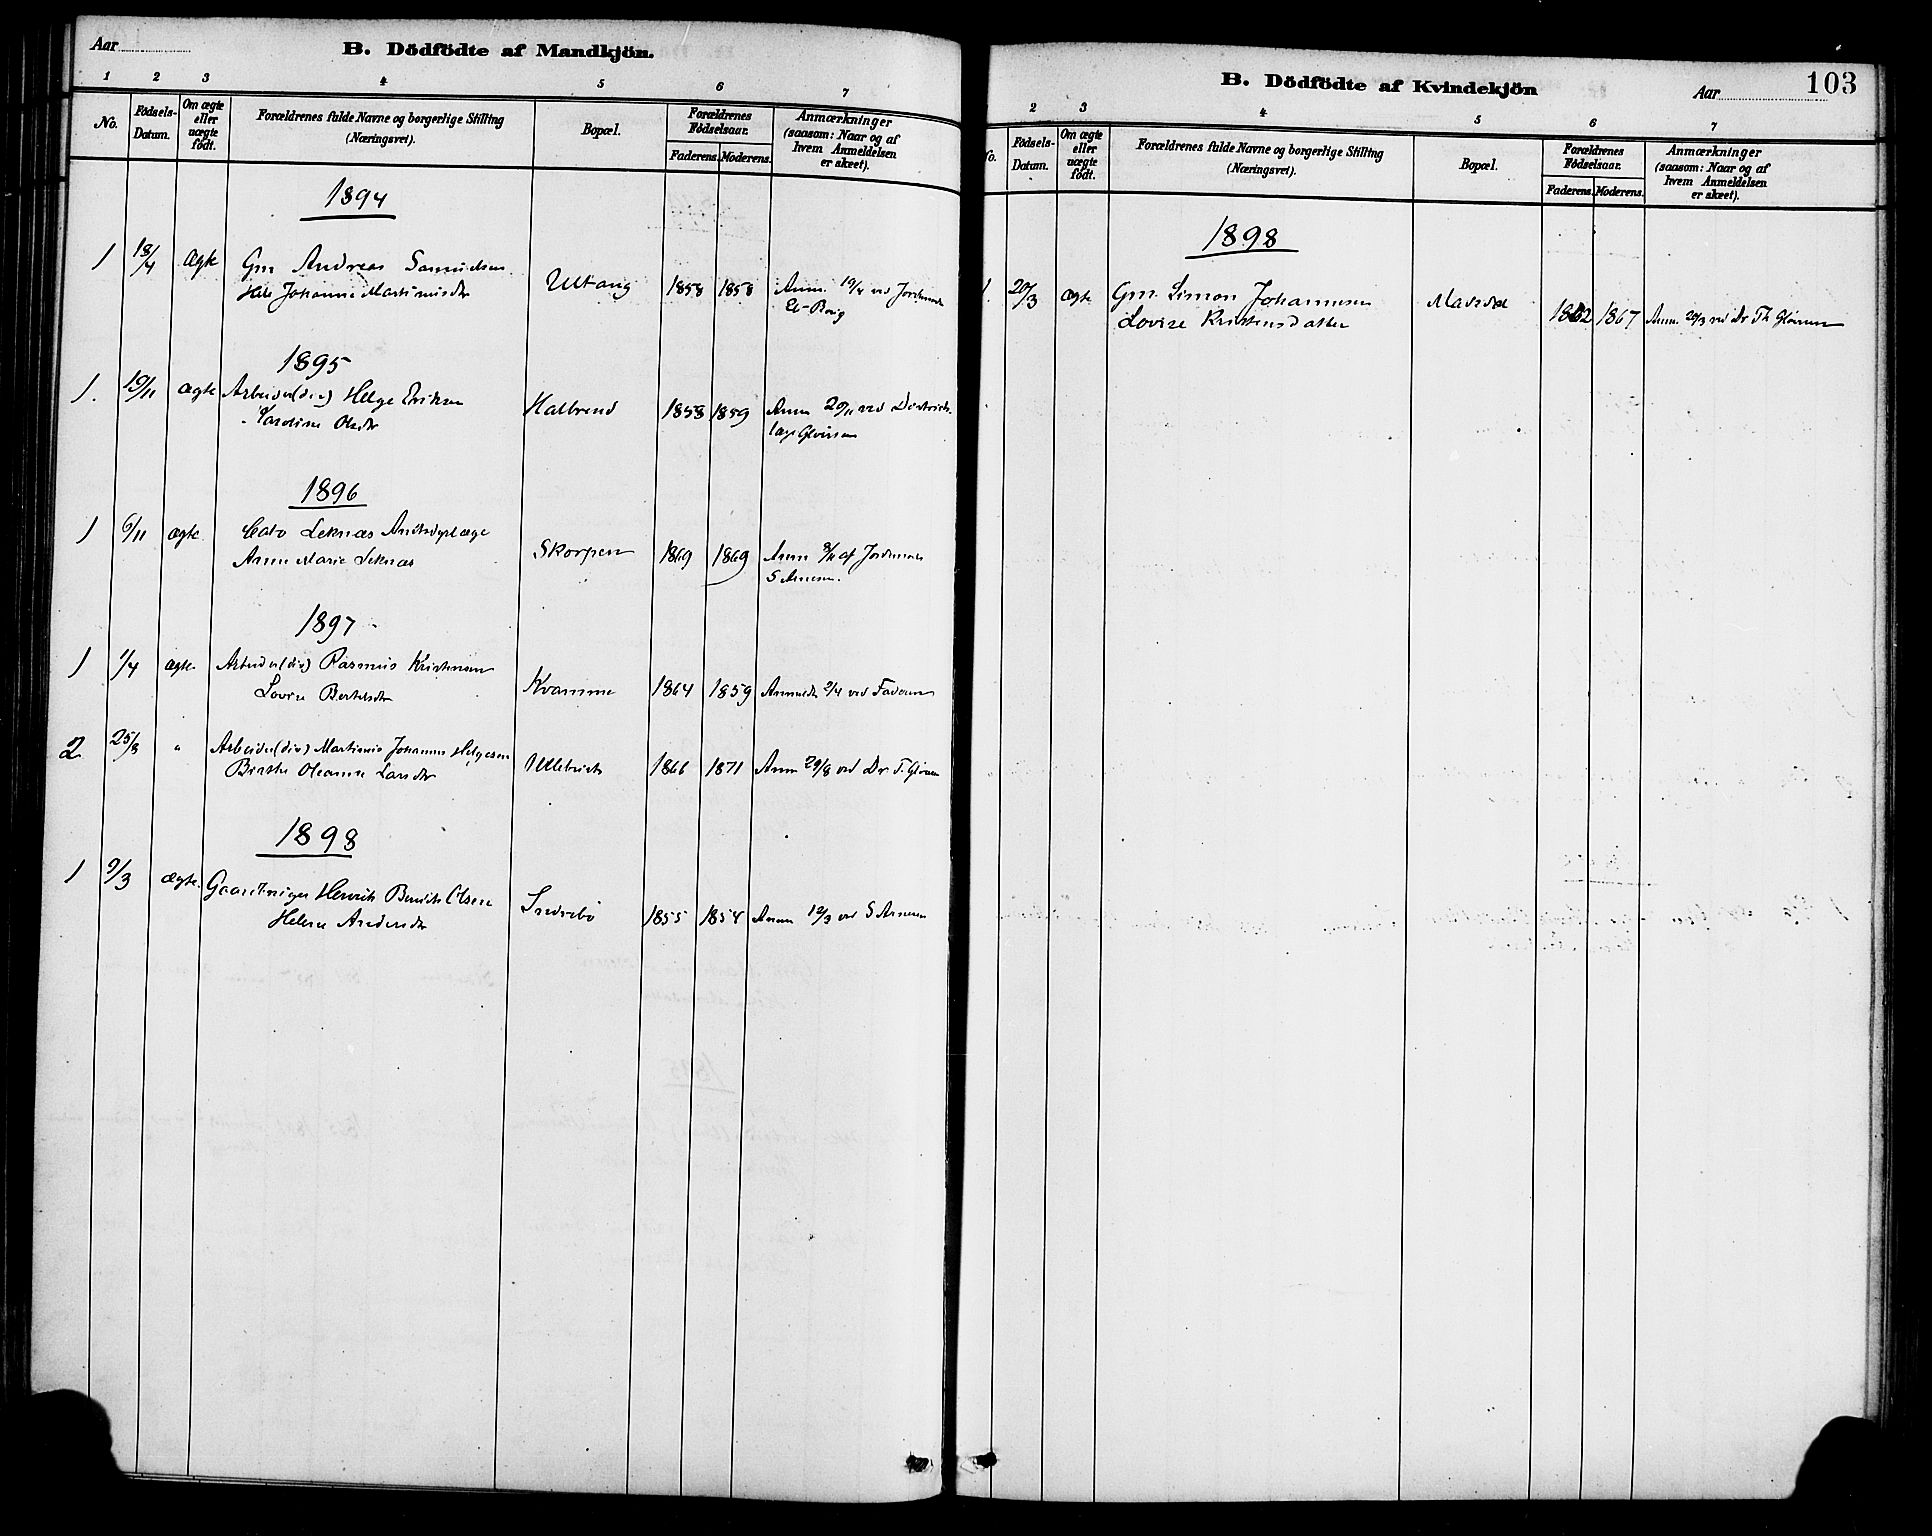 Aar
B. Dödfödte af Mandkjön.
1 2 3 4 5 6 7
No.
Fødsels-Datum.
Om ægte eller uægte født.
Forældrenes fulde Navne og borgerlige Stilling (Næringsvei).
Bopæl.
Forældrenes Fødselsaar.
Faderens. Moderens.
Anmærkninger (saasom: Naar og af hvem Anmeldelsen er skeet).
1894
1 18/4 Ægte Gm Andreas Samuelsen 1858 1858 Anm. 19/4 ved
Johanne Martinusdtr
1895
1. 19/11 Ægte Arbeider (div) Helge Eriksen Halbrend 1858 1859 Anm 20/11 ved Distrikts-
Karoline Olsdtr læge
1896
1 6/11 ægte Cato Leknæs Amtsdyrlæge Skorpen 1869 1869 Anm 9/11 af Jordmoder
Anne Marie Leknæs S Arnesen.
1897
1 1/4 ægte Arbeider (div) Rasmus Kristensen Kvamme 1864 1859 Anmeldt 2/4 ved Faderen
Lovise Bertelsdtr
2 25/8 " Arbeider (div) Martinus Johannes Helgesen 1866 1871 Anm 29/8 ved Dr
Birthe Oleanna Larsdtr
1898
1 9/3 ægte. Henrik Bendik Olsen Indrebö 1855 1854 Anm 19/3 ved S Arnesen
Helene Andersdtr
B. Dödfödte af Kvindekjön
Aar
103
2 3 4 5 6 7
No.
Fødsels-Datum.
Om ægte eller uægte født.
Forældrenes fulde Navne og borgerlige Stilling (Næringsvei).
Bopæl.
Forældrenes Fødselsaar.
Faderens. Moderens.
Anmærkninger (saasom: Naar og af hvem Anmeldelsen er skeet).
1898
1. 20/3 ægte Gm. Simon Johannesen 1862 1867 Anm. 20/3 ved Dr Th
Lovise Kristensdatter